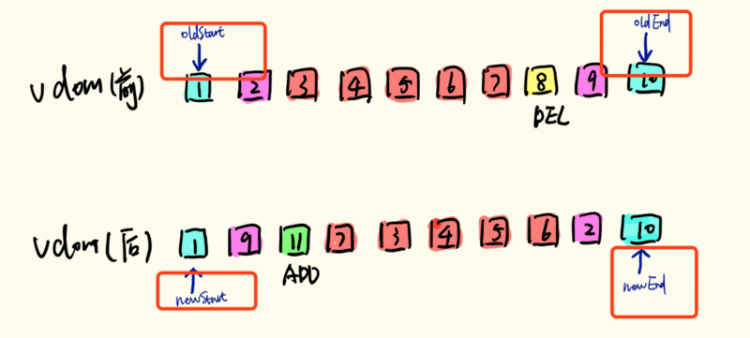 oldStart oldEnd
vdom(前) 1 2 3 4 5 6 7 8 9 10
DEL
vdom(后) 1 9 11 7 3 4 5 6 2 10
ADD
newStart newEnd